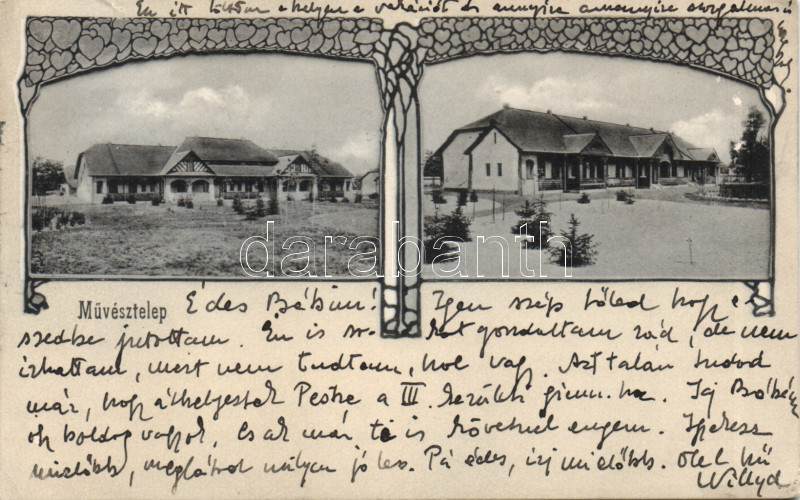 Én itt töltöm e helyen a vakációt és annyira amennyire szorgalmas is
darabanth.com
Művésztelep
Édes Bébim! Igen szép tőled hogy
szedbe jutottam. Én is so- kat gondoltam rád, de nem
írhattam, mert nem tudtam, hol vagy. Azt talán tudod
már, hogy áthelyeztek Pestre a III. kerületi gimn.ba. Jaj Bébém
oh boldog vagyok, csak már te is követnél engem. Igyekezz
mielőbb, meglátod milyen jó lesz. Pá édes, írj mielőbb. Ölel hű
Willyd